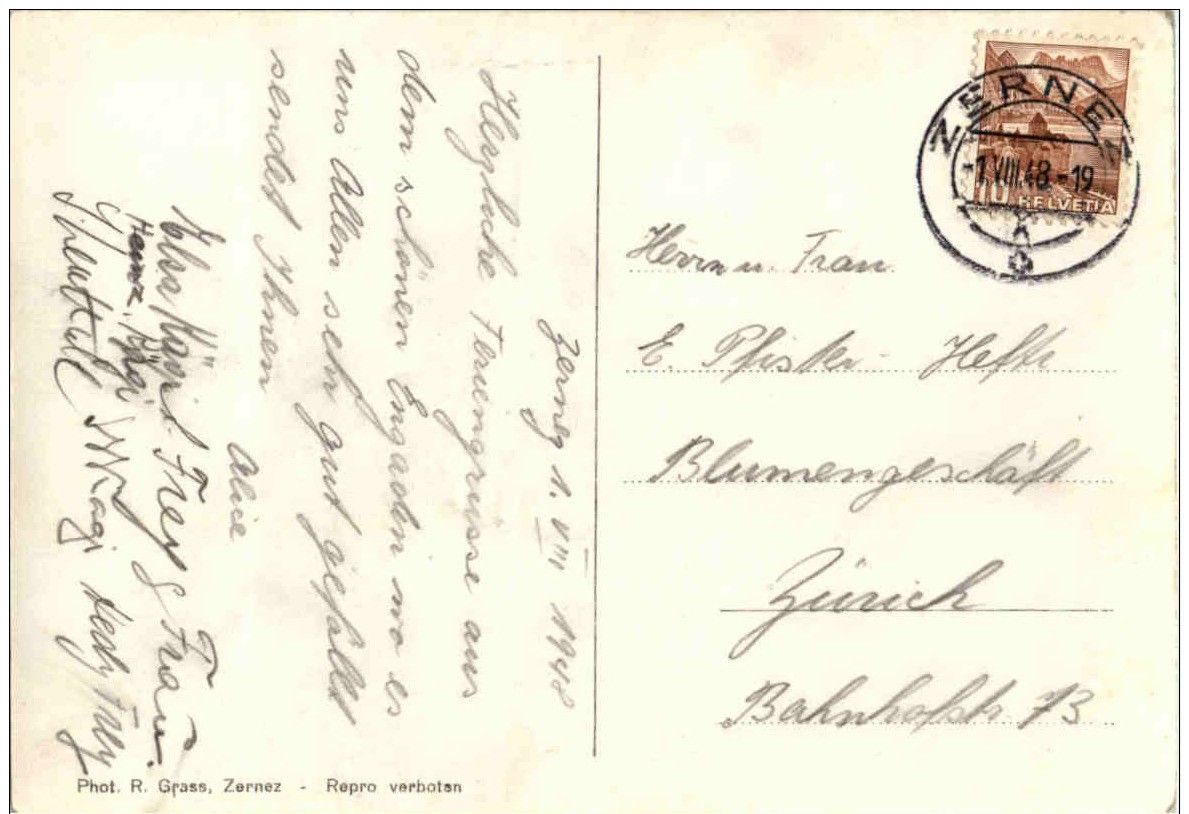 Zernez 1. VIII 1948
Herzliche Feriengrüsse aus
dem schönen Engadin wo es
uns Allen sehr gut gefällt
sendet Ihnen
Alice
Elsa Kägi. Frey & Frau.
Heinz. Kägi
Kägi Hedy Frey
Herrn u. Frau
E. Pfister-Hefti
Blumengeschäft
Zürich
Bahnhofstr. 73
ZERNEZ
-1.VIII.48.-19
10 HELVETIA
Phot. R. Grass, Zernez - Repro verboten